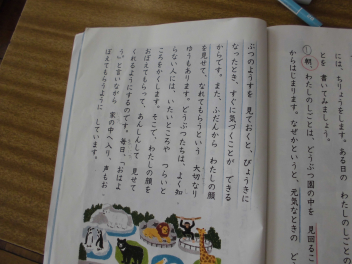 には、ちりょうをします。ある日の わたしのしごとの
とを 書いてみましょう。
① 朝、わたしのしごとは、どうぶつ園の中を 見回るこ
からはじまります。なぜかというと、元気なときの ど
ぶつのようすを 見ておくと、びょうきに
なったとき、すぐに気づくことが できる
からです。また、ふだんから わたしの顔
を見せて、なれてもらうという 大切なり
ゆうもあります。どうぶつたちは、よく知
らない人には、いたいところや つらいと
ころをかくします。そこで、わたしの顔を
おぼえてもらって、あんしんして 見せて
くれるようにするのです。毎日、「おはよ
う。」と言いながら 家の中へ入り、声もお
ぼえてもらうように しています。